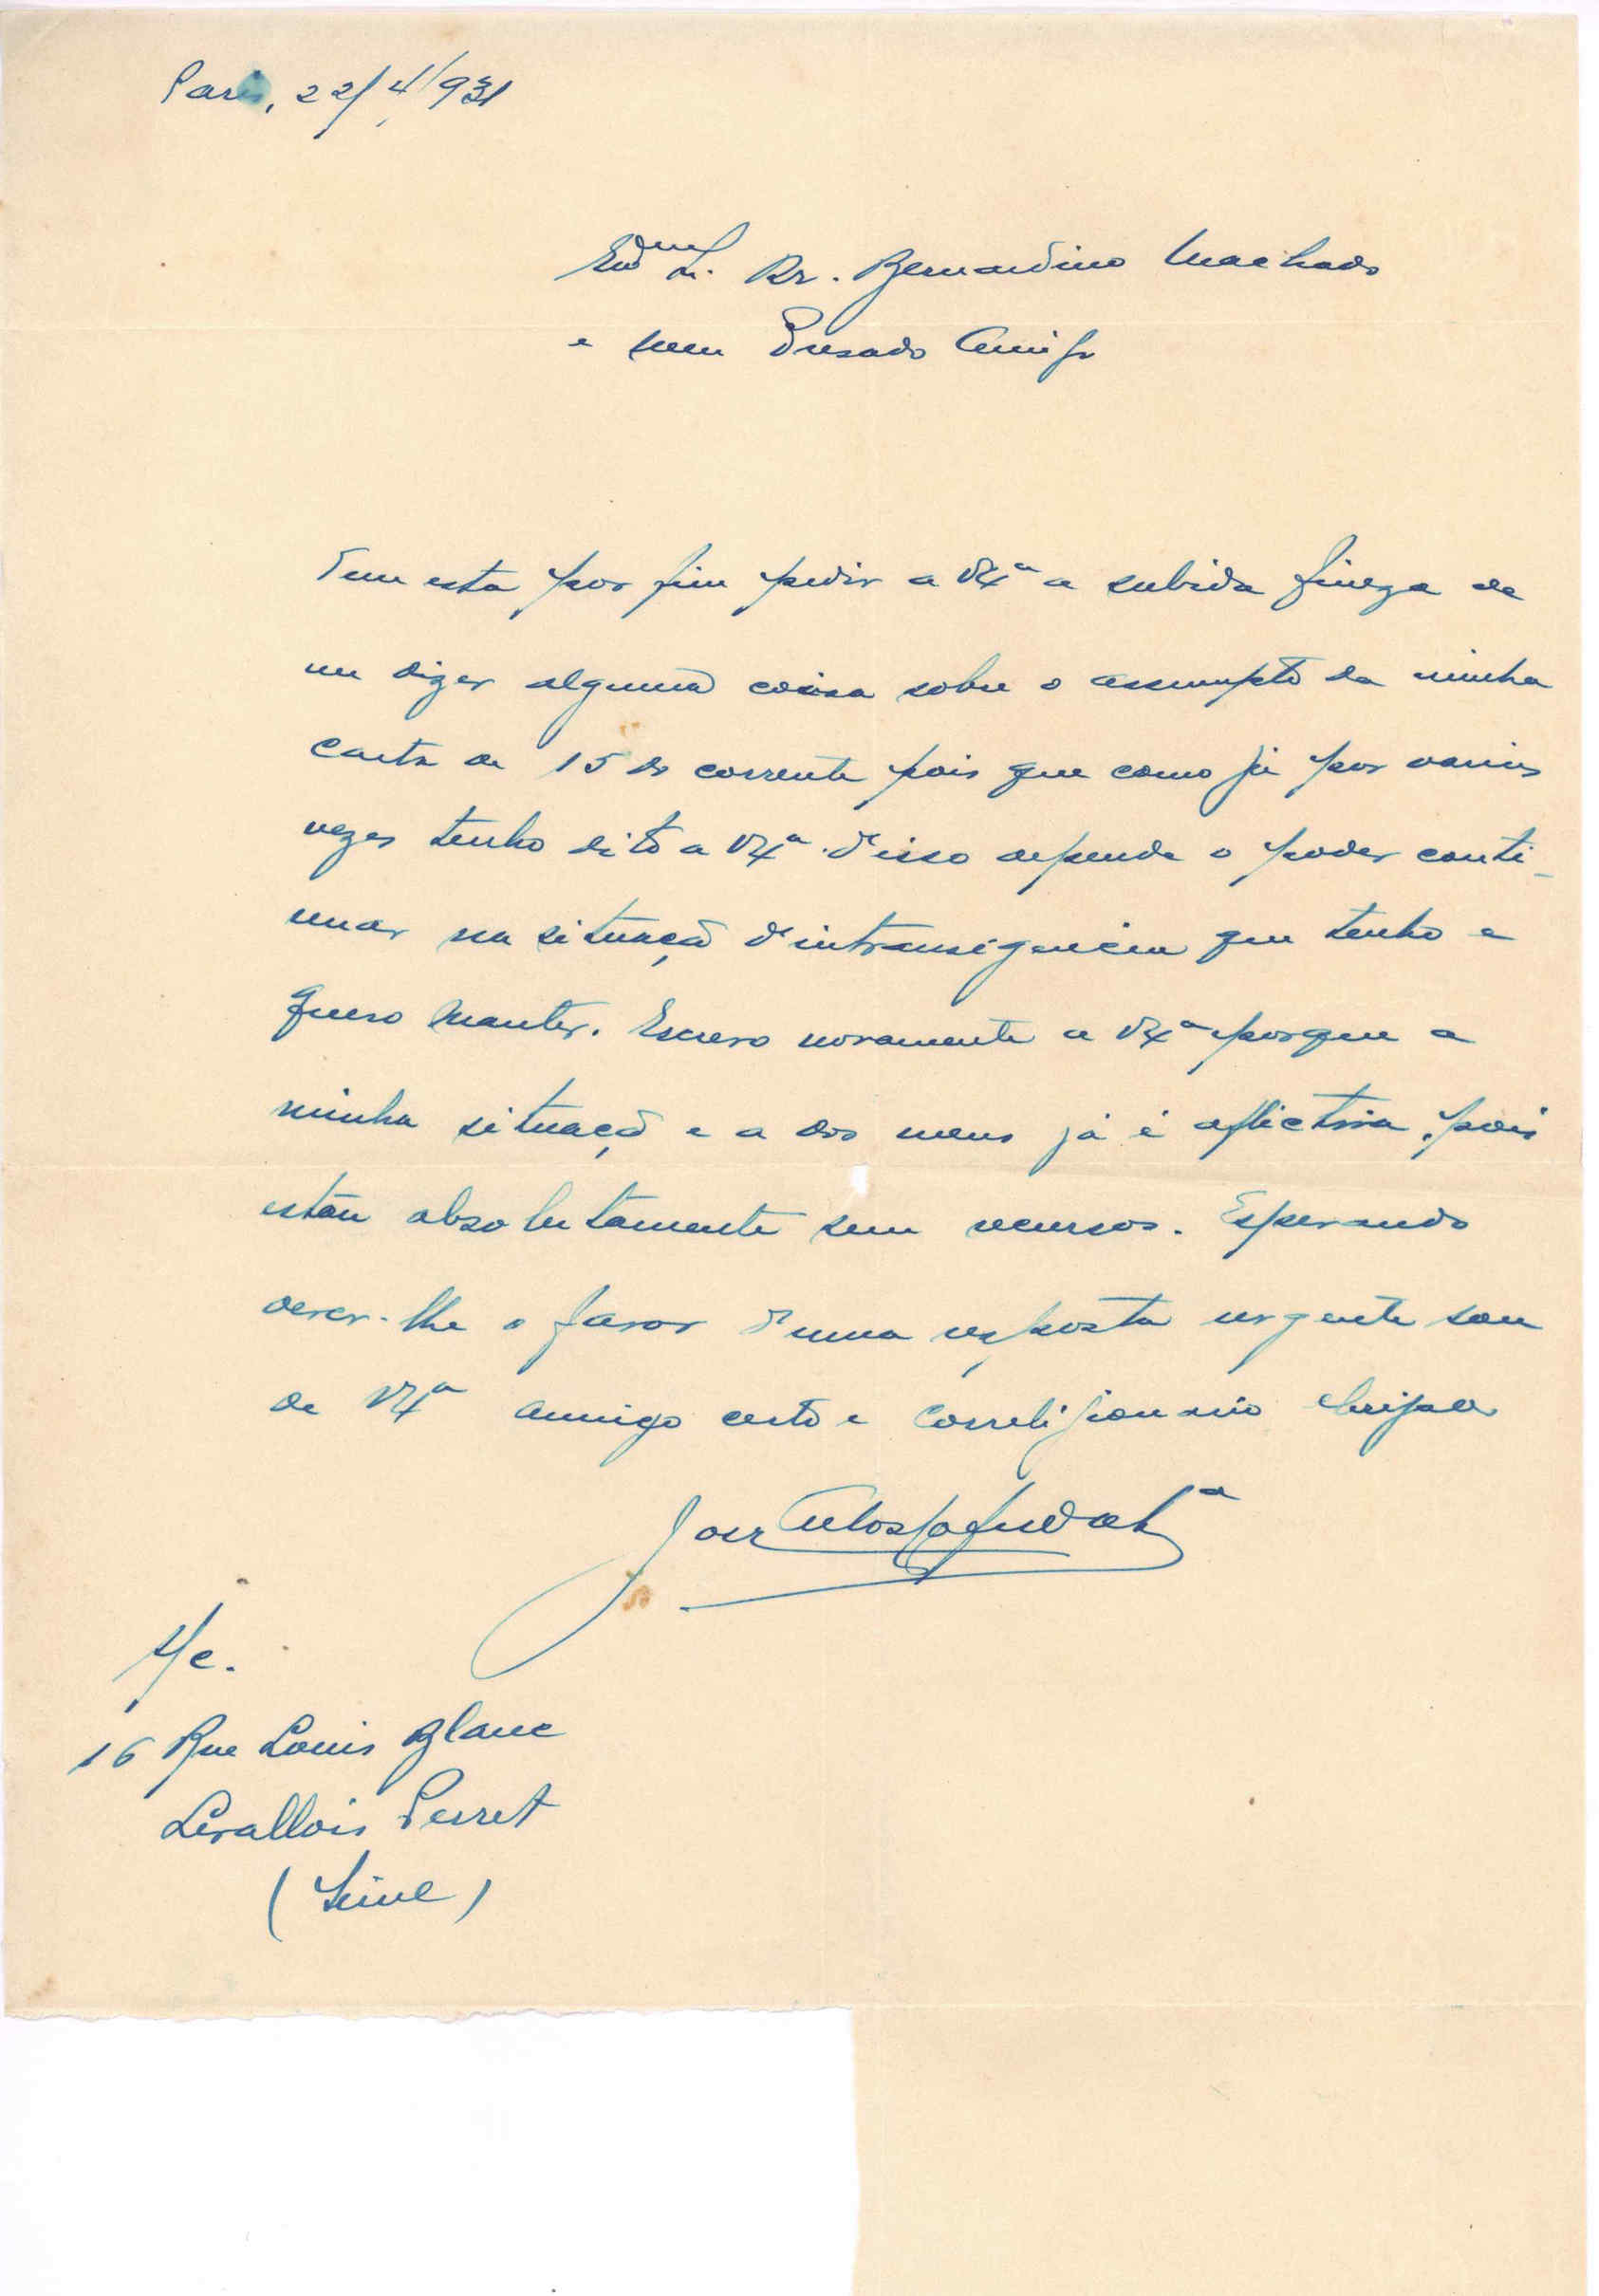 Paris, 22/4/931
Exmo Sr. Dr. Bernardino Machado
e meu Presado Amigo
Tem esta por fim pedir a V. Ex.ª a subida fineza de
me dizer alguma coisa sobre o assumpto da minha
carta de 15 do corrente pois que como já por varias
vezes tenho dito a V. Ex.ª d'isso depende o poder conti-
nuar na situação d'intransigencia que tenho e
quero manter. Escrevo novamente a V. Ex.ª porque a
minha situação e a dos meus já é aflictiva, pois
estão absolutamente sem recursos. Esperando
dever-lhe o favor d'uma resposta urgente sou
de V. Ex.ª amigo certo e correligionario
José
S/c.
16 Rue Louis Blanc
Levallois Perret
(Seine)